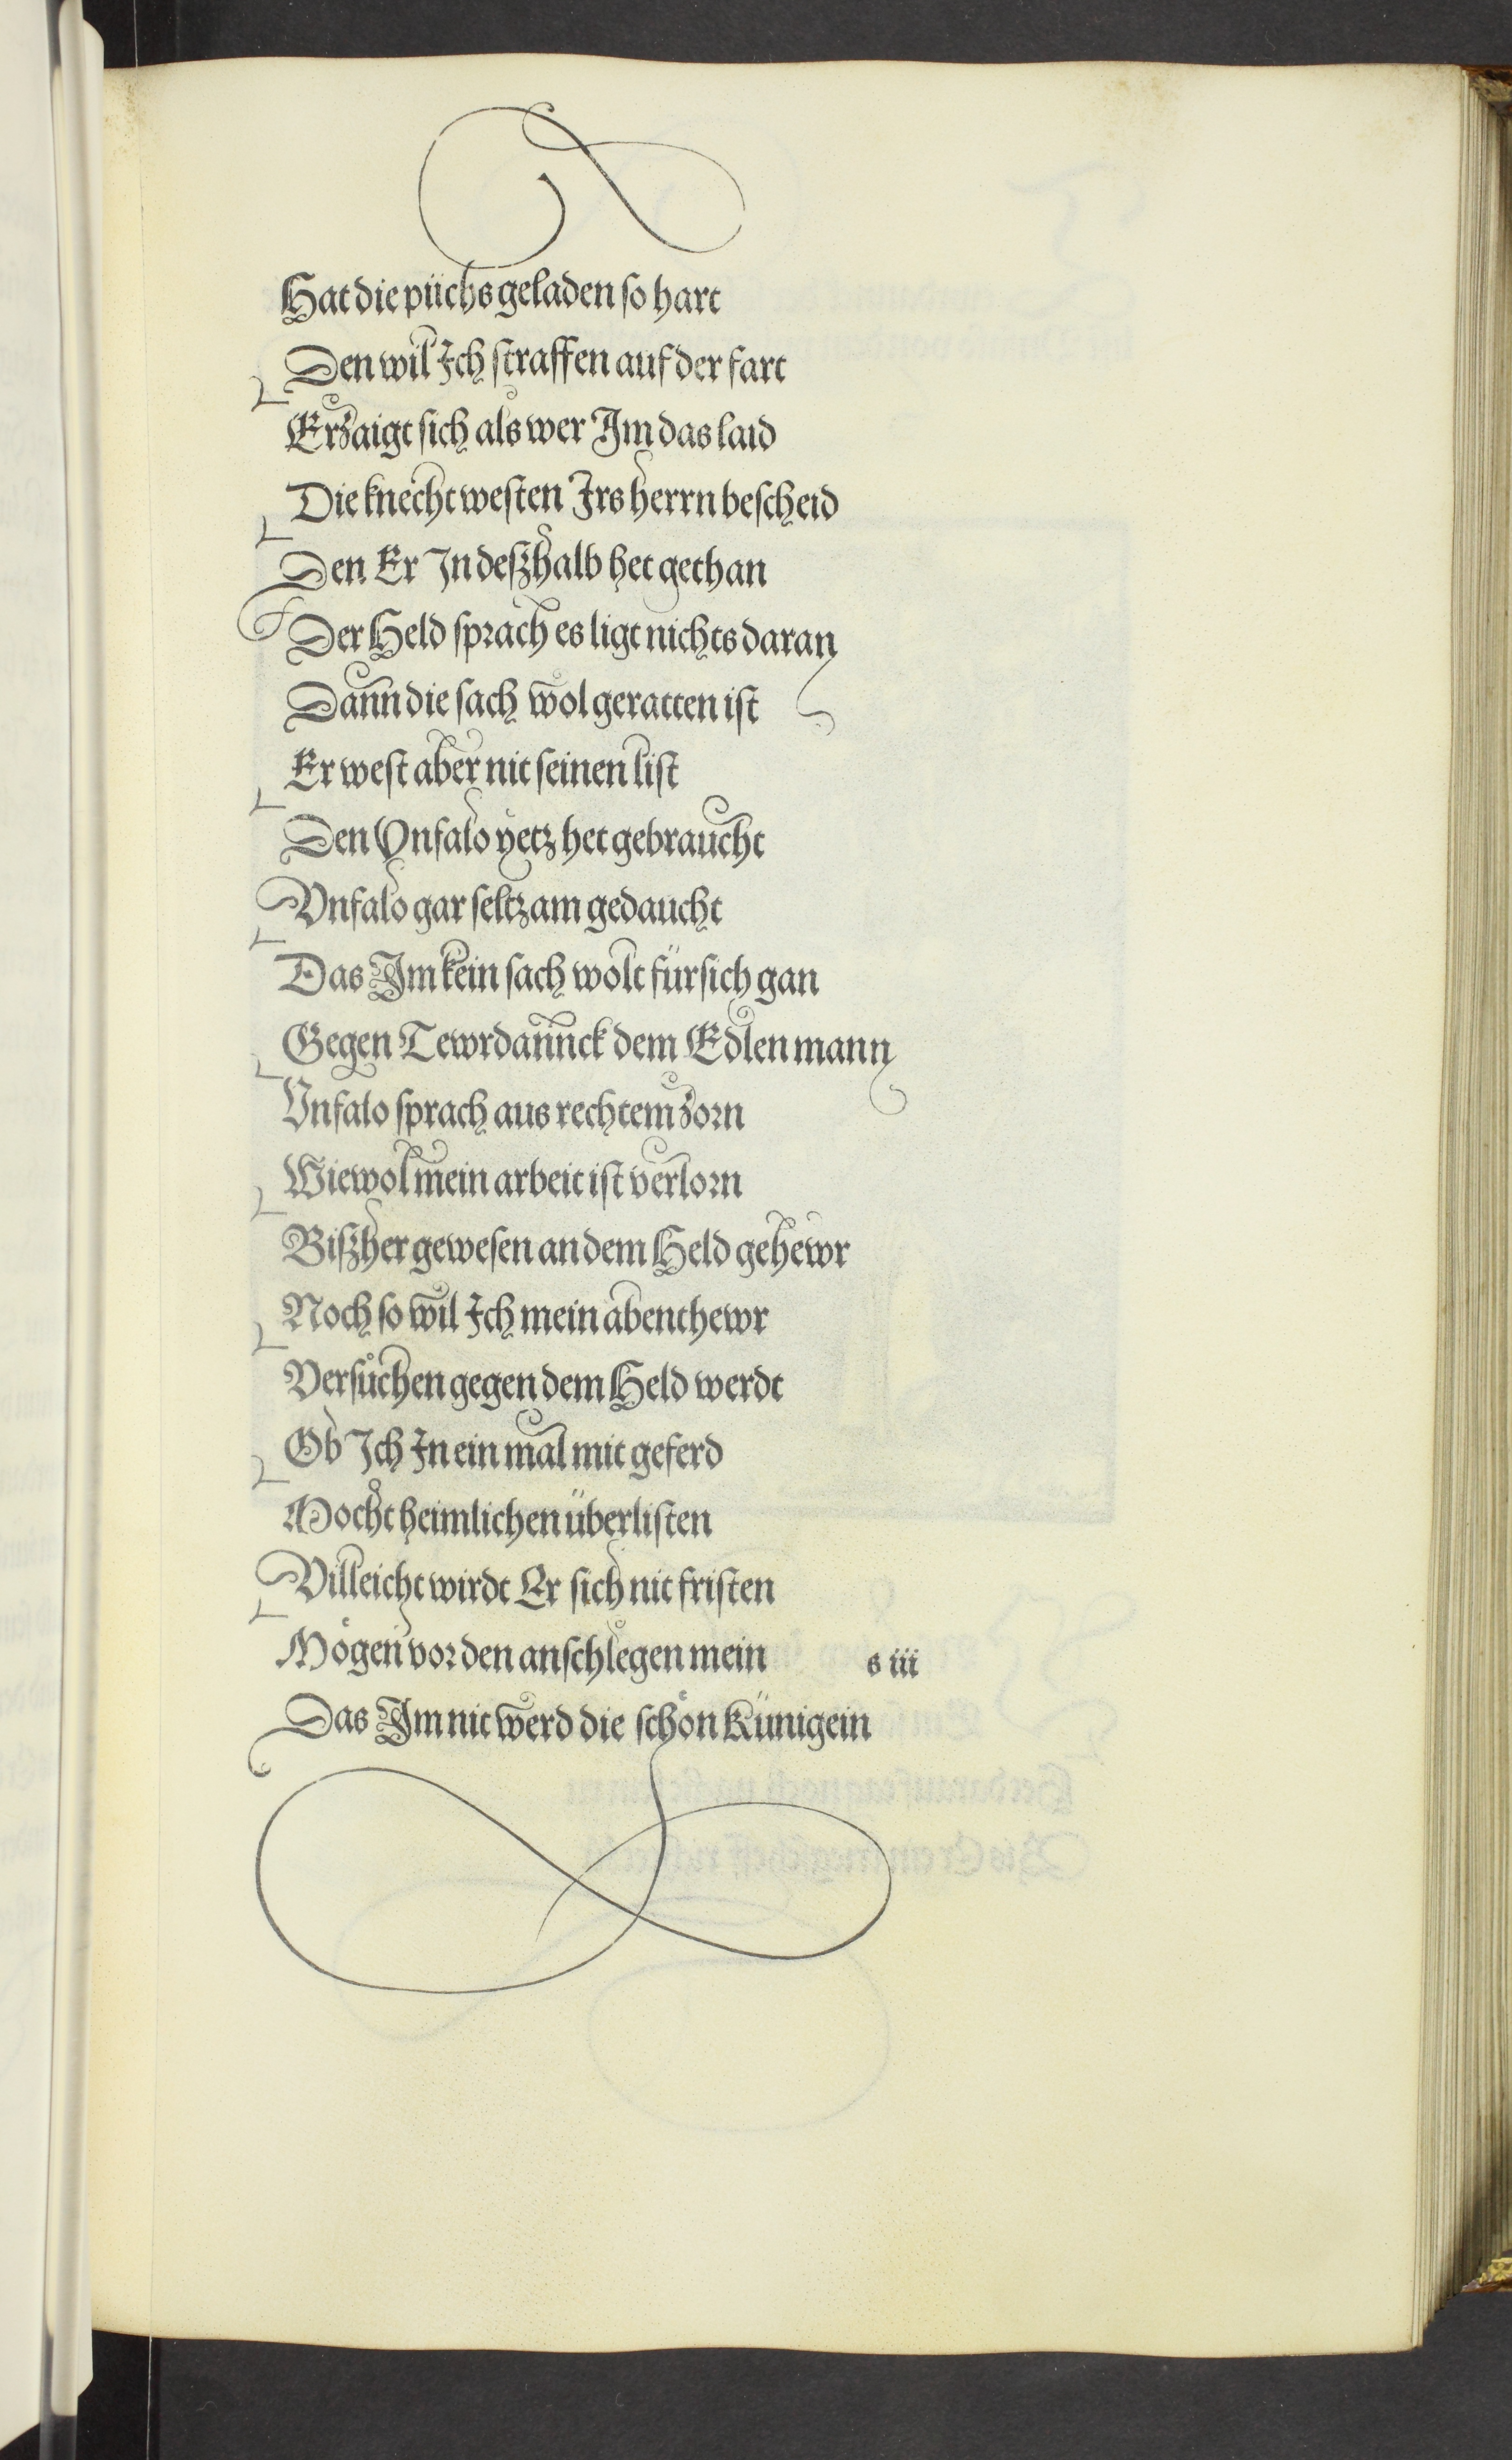 Hat die püchs geladen ſo hart
Den wil Ich ſtraffen auf der fart
Erzaigt ſich als wer Im das laid
Die knecht weſten Irs herrn beſcheid
Den Er In deſzhalb het gethan
Der Held ſprach es ligt nichts daran
Dann die ſach wol geratten iſt
Er weſt aber nit ſeinen liſt
Den Vnfalo yetz het gebraucht
Vnfalo gar ſeltzam gedaucht
Das Im kein ſach wolt für ſich gan
Gegen Tewrdannck dem Edlen mann
Vnfalo ſprach aus rechtem zorn
Wiewol mein arbeit iſt verlorn
Biſzher geweſen an dem Held gehewr
Noch ſo wil Ich mein abenthewr
Verſůchen gegen dem Held werdt
Ob Ich In ein mal mit geferd
Mocht heimlichen überliſten
Villeicht wirdt Er ſich nit friſten
Mögen vor den anſchlegen mein s iii
Das Im nit werd die ſchön Künigein